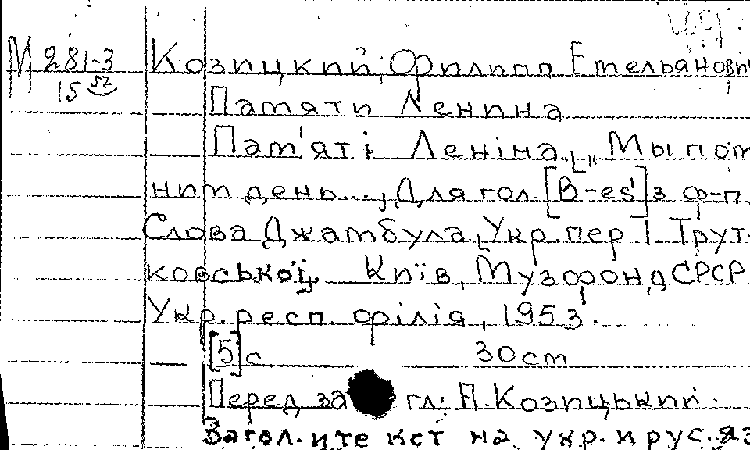 М 281-3 Козицкий, Филипп Емельянович
15 52
Памяти Ленина
Пам'яті Леніна. „Мы пом
ним день...", Для гол [B-es'] з ф-п.
Слова Джамбула, Укр. пер І Трут-
ковської. Київ, Музфонд СРСР
Укр. респ. філія, 1953.
[5] с 30 cm
Перед загл: П. Козицький.
Загол. и текст на укр. и рус. яз